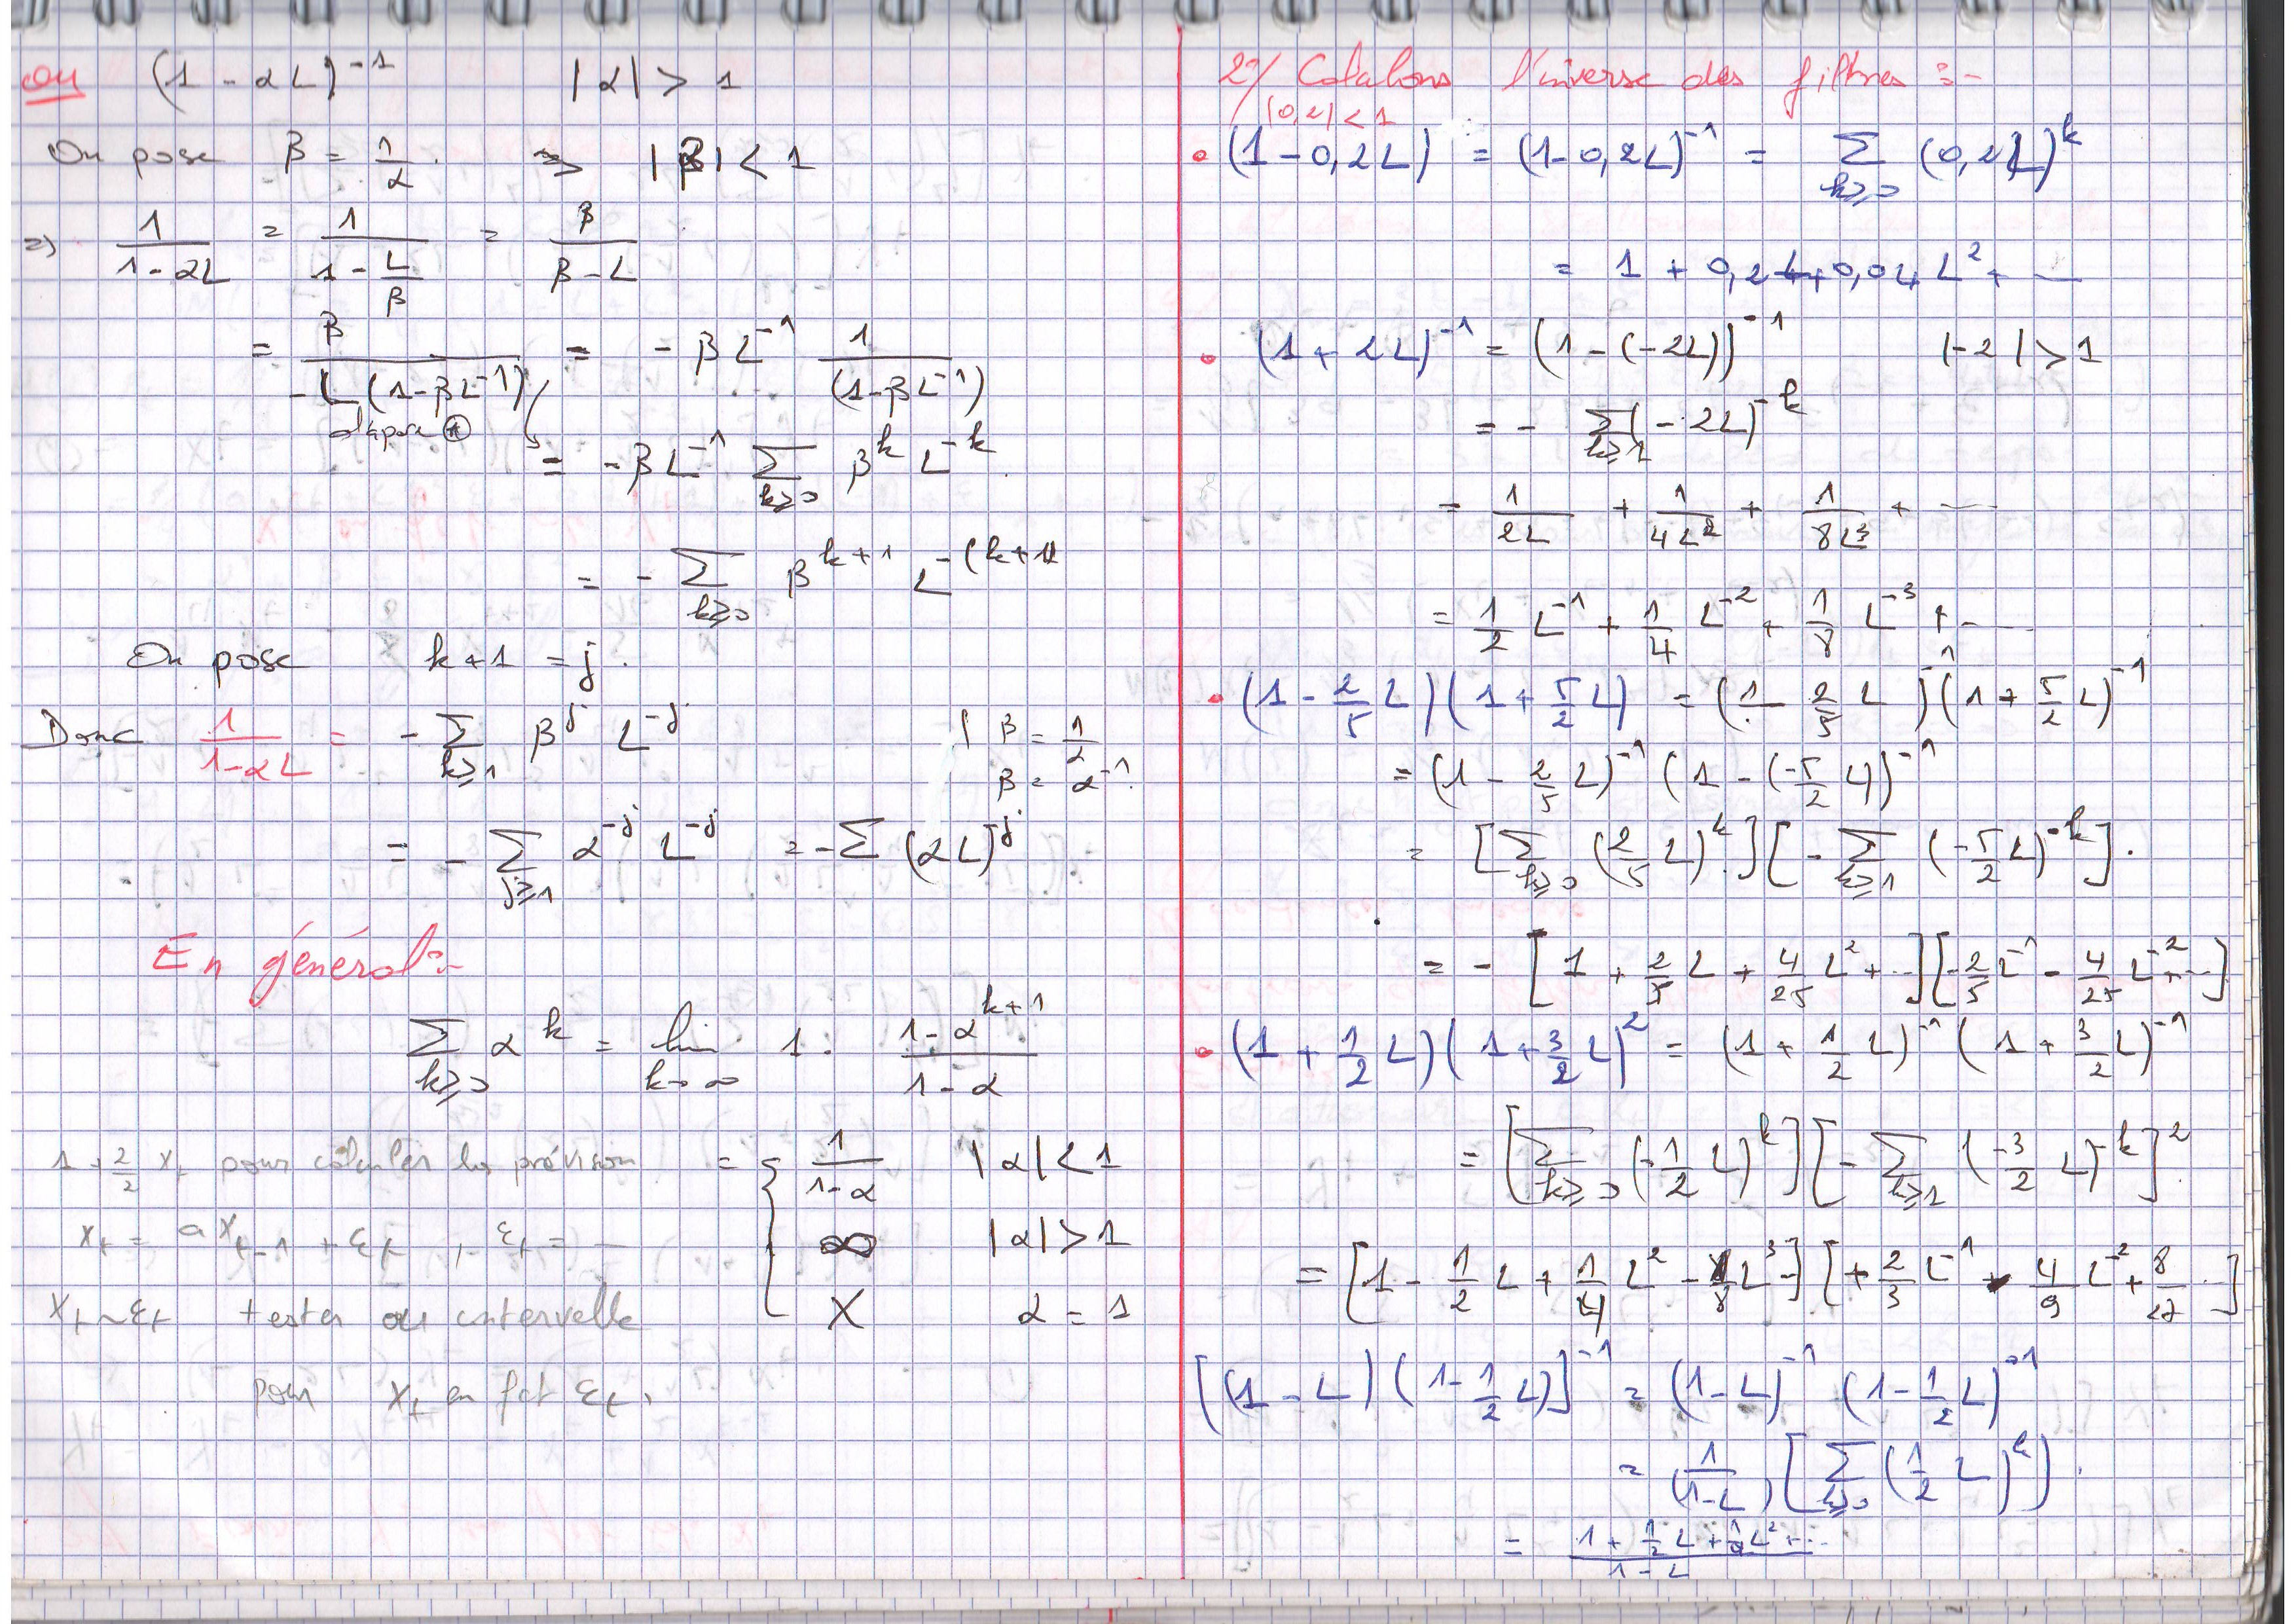 ou (1 - αL)^{-1} |α| > 1
On pose β = 1/α . => |β| < 1
=> 1/(1-αL) = 1/(1 - L/β) = β/(β - L)
= β/(-L(1-βL^{-1})) = - β L^{-1} 1/(1-βL^{-1})
= -βL^{-1} Σ_{k≥0} β^k L^{-k}.
= - Σ_{k≥0} β^{k+1} L^{-(k+1)}
On pose k+1 = j.
Donc 1/(1-αL) = - Σ_{k≥1} β^j L^{-j} | β = 1/α
β = α^{-1}.
= - Σ_{j≥1} α^{-j} L^{-j} = - Σ (αL)^{-j}
En général :-
Σ_{k≥0} α^k = lim_{k→∞} 1 . (1-α^{k+1})/(1-α)
= { 1/(1-α) |α| < 1
∞ |α| > 1
X α = 1
1 + 2/2 x_t pour calculer la prévision
x_t = a x_{t-1} + ε_t , ε_t = —
x_t ~ ε_t tester ou intervelle
pour x_t en fct ε_t.
2°/ Calculons l'inverse des filtres :-
|0,2| < 1
• (1 - 0,2L) = (1-0,2L)^{-1} = Σ_{k≥0} (0,2L)^k
= 1 + 0,2L + 0,04 L² + ---
• (1 + 2L)^{-1} = (1 - (-2L))^{-1} |-2| > 1
= - Σ_{k≥1} (-2L)^{-k}
= 1/2L + 1/4L² + 1/8L³ + ---
= 1/2 L^{-1} + 1/4 L^{-2} + 1/8 L^{-3} + ---
• (1 - 2/5 L)(1 + 5/2 L) = (1 - 2/5 L)^{-1} (1 + 5/2 L)^{-1}
= (1 - 2/5 L)^{-1} (1 - (-5/2 L))^{-1}
= [Σ_{k≥0} (2/5 L)^k] [- Σ_{k≥1} (-5/2 L)^{-k}].
= - [1 + 2/5 L + 4/25 L² + ...] [-2/5 L^{-1} - 4/25 L^{-2} + ...]
• (1 + 1/2 L)(1 + 3/2 L)² = (1 + 1/2 L)^{-1} (1 + 3/2 L)^{-1}
= [Σ_{k≥0} (-1/2 L)^k] [- Σ_{k≥1} (-3/2 L)^{-k}]²
= [1 - 1/2 L + 1/4 L² - 1/8 L³ -] [+ 2/3 L^{-1} + 4/9 L^{-2} + 8/27 ...]
[(1 - L)(1 - 1/2 L)]^{-1} = (1-L)^{-1} (1 - 1/2 L)^{-1}
= (1/(1-L)) [Σ_{k≥0} (1/2 L)^k].
= (1 + 1/2 L + 1/4 L² + ...)/(1-L)